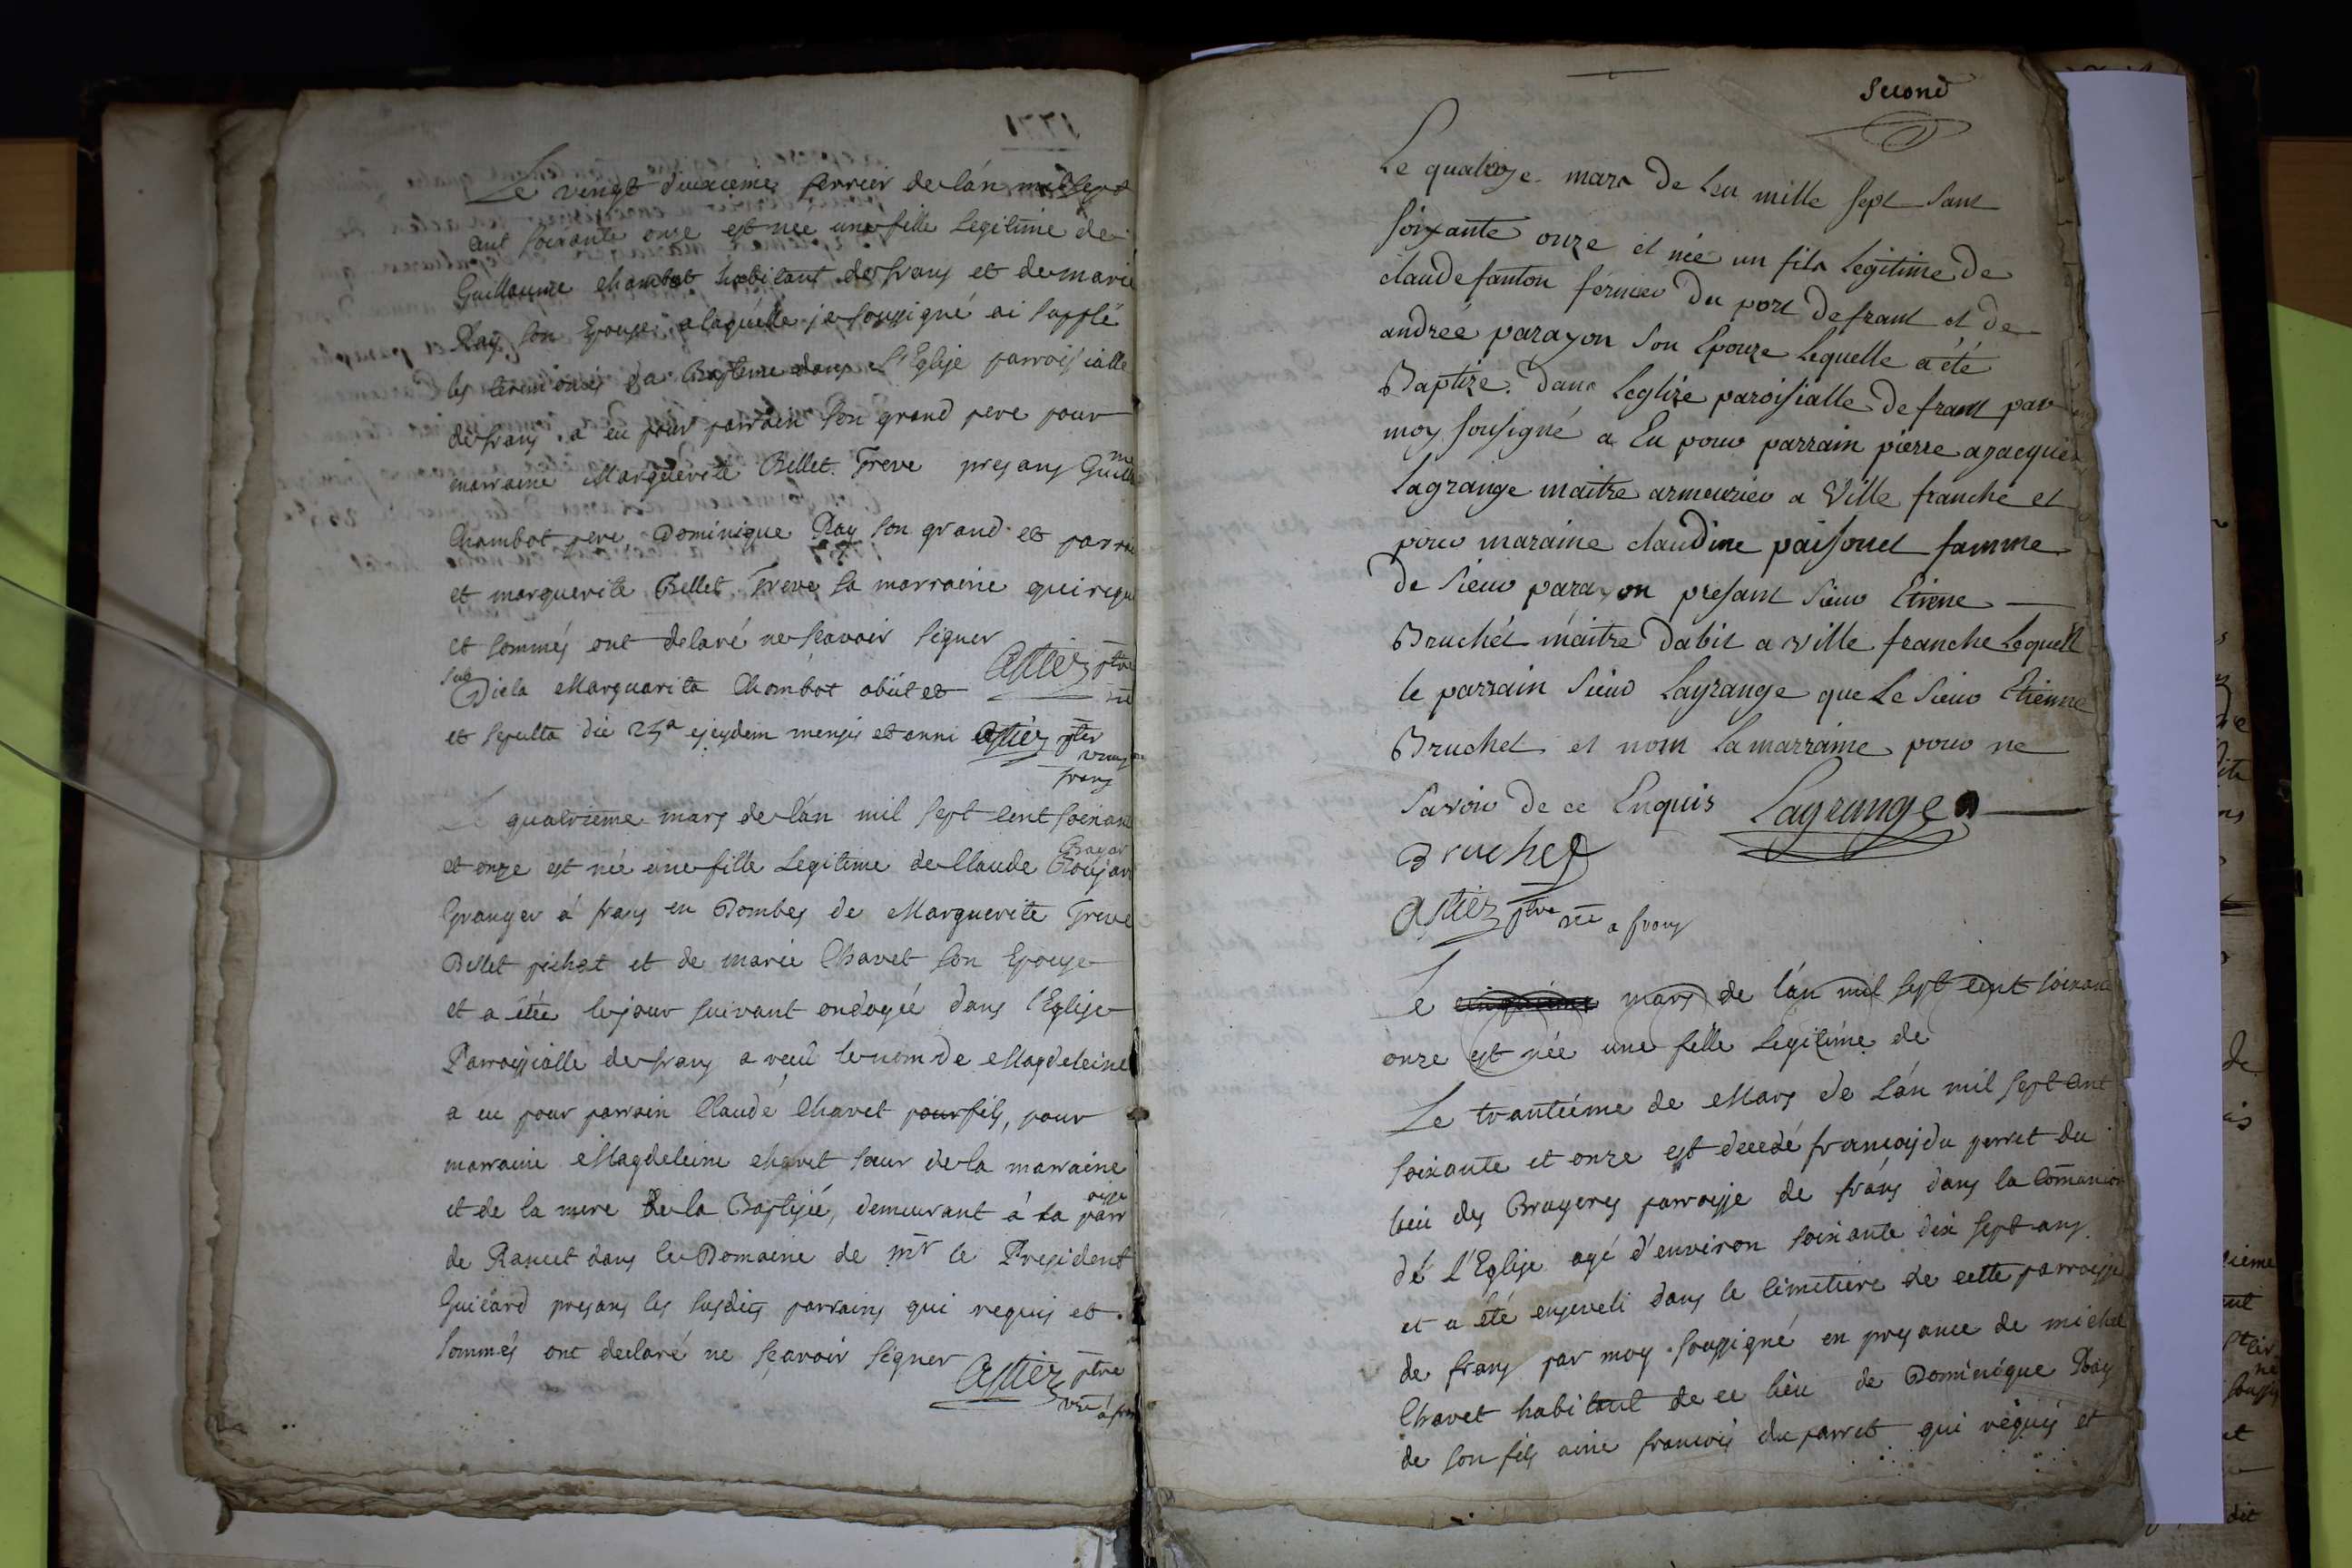 Le vingt deuxieme fevrier de lán mil sept
cent soixante onze est née une fille Legitime de
Guillaume Chambot habitant de frans et de marie
Ray son Epouse, a laquelle je soussigné ai supplé
les ceremonies du Baptême dans l'Eglise parroissialle
de frans. a eu pour parrain son grand pere pour
marraine Marguerite Bellet. Treve presans Guille
me
Chambot pere Dominique Ray son grand et parrain
et marguerite Bellet Treve sa marraine qui requis
et sommés ont delaré ne scavoir signer
Astier ptre
Sus
Dicta Marguarita Chambot obiit et
et sepulta die 25a ejusdem mensis et anni Astier pter
frans
Le quatrieme mars de lán mil sept cent soixante
et onze est née une fille Legitime de Claude
Granger á frans en Dombes de Marguerite Treve
Bellet pichat et de marie Chavet son Epouse
et a étée le jour suivant ondoyée dans l'Eglise
Parroissialle de frans a reçu le nom de Magdeleine
a eu pour parrain Claude Chavet pour fils, pour
marraine Magdeleine chavet sœur de la marraine
et de la mere de la Baptisée, demeurant á la parr
oisse
de Rancet dans le Domaine de Mr le President
Guicard presans les susdits parrains qui requis et
sommés ont declaré ne scavoir signer Astier ptre
vre á frans
1771
Second
Le quatorze mars de Len mille sept sant
soixante onze et née un fils legitime de
claude fanton fermier du port de frant et de
andrée parayon son Epouze Lequelle a été
Baptize. dans Leglize paroisialle de frant par
moy sousigné a Eu pour parrain pierre ajacques
lagrange maitre armeurier a Ville franche et
pour maraine claudine paisonet famme
de sieur parayon presant sieur Etiene
Bruchet maitre dabit a ville franche Lequell
le parrain sieur Lagrange que Le sieur Etienne
Bruchet et nom la marraine pour ne
savoir de ce Enquis Lagrange
Bruchet
Astier ptre vre a frans
Le cinquieme mars de l'án mil sept cent soixante
onze est née une fille Legitime de
Le trantiéme de Mars de Lán mil sept cent
soixante et onze est decedé françois du perret du
lieu des Bruyeres parroisse de frans dans la Com̄union
dé l'Eglise agé d'environ soixante dix sept ans
et a été enseveli dans le cimetiere de cette parroisse
de frans par moy soussigné en presance de michel
Chavet habitant de ce lieu de Dominique Ray
de son fils ainé francois du parret qui réquis et